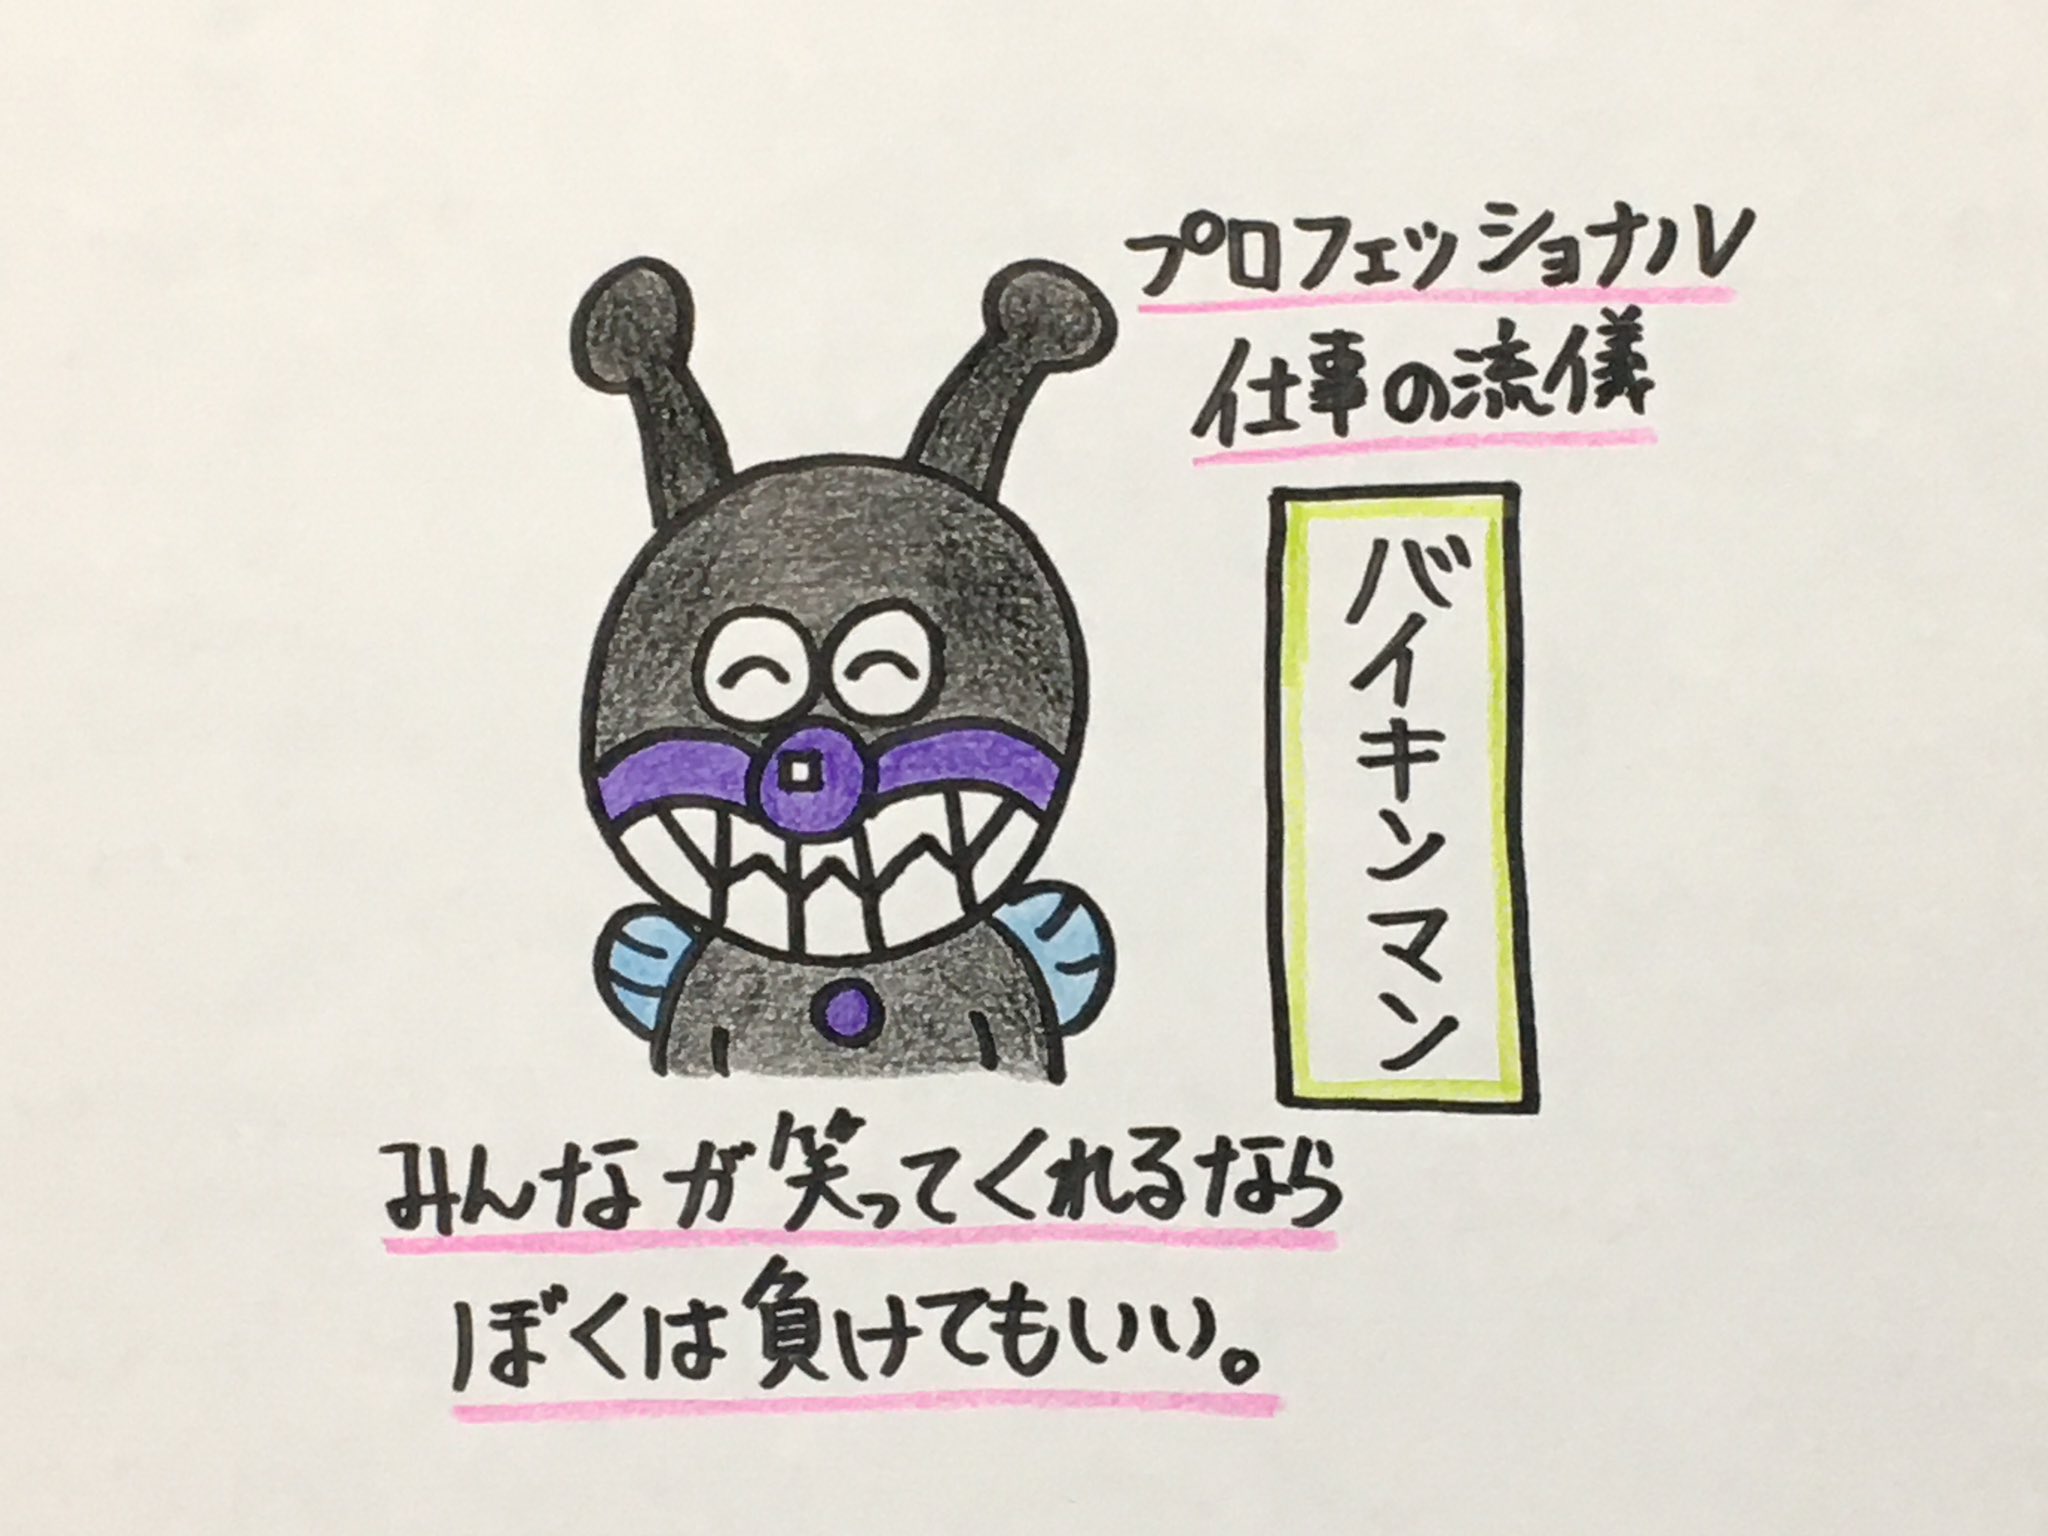 プロフェッショナル
仕事の流儀
バイキンマン
みんなが笑ってくれるなら
ぼくは負けてもいい。